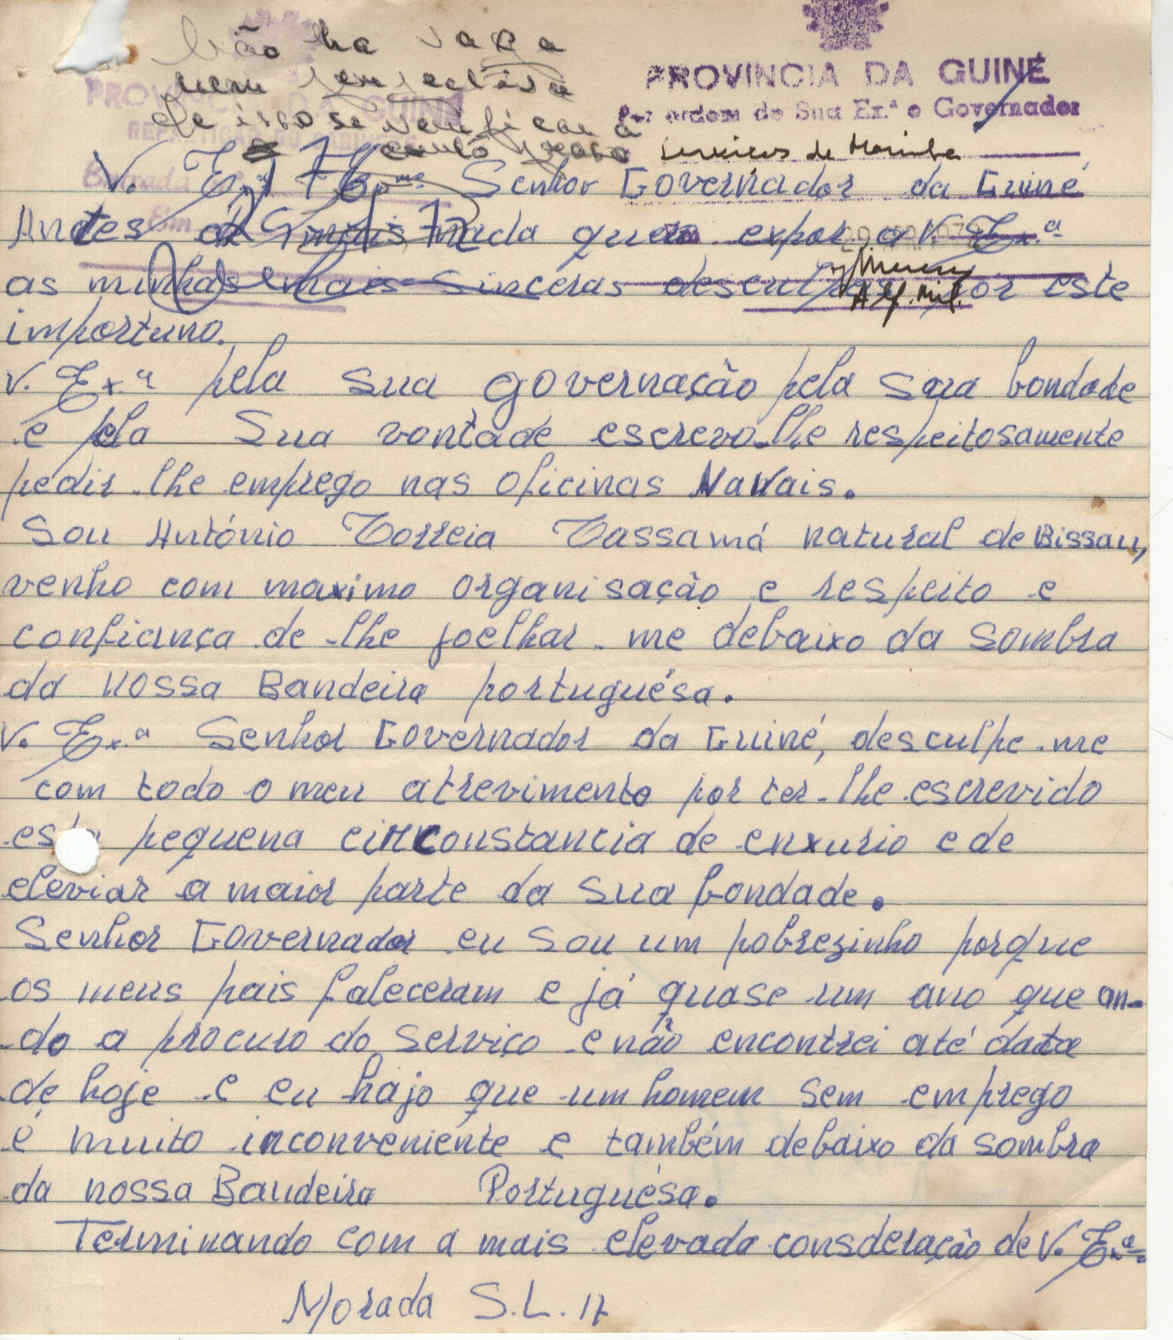 Não ha vaga
nem
de isso se verificar a
curto prazo
PROVINCIA DA GUINÉ
PROVINCIA DA GUINÉ
Por ordem de Sua Ex.ª o Governador
Serviços de Marinha
Entrada
Em
Alf. Mil.
V. Ex.ª Senhor Governador da Guiné
Andes de mais nada quero expor a V. Ex.ª
as minhas mais sinceras desculpas por este
importuno.
V. Ex.ª pela sua governação pela sua bondade
e pela Sua vontade escrevo-lhe respeitosamente
pedir-lhe emprego nas oficinas Navais.
Sou António Correia Cassamá natural de Bissau,
venho com maximo organisação e respeito e
confiança de-lhe joelhar-me debaixo da sombra
da nossa Bandeira portuguésa.
V. Ex.ª Senhor Governador da Guiné, desculpe-me
com todo o meu atrevimento por ter-lhe escrevido
esta pequena circonstancia de enxurio e de
eleviar a maior parte da sua bondade.
Senhor Governador eu sou um pobrezinho porque
os meus pais faleceram e já quase um ano que an-
do a procuro do serviço e não encontrei até data
de hoje e eu hajo que um homem sem emprego
é muito inconveniente e também debaixo da sombra
da nossa Bandeira Portuguésa.
Terminando com a mais elevada consderação de V. Ex.ª
Morada S.L.